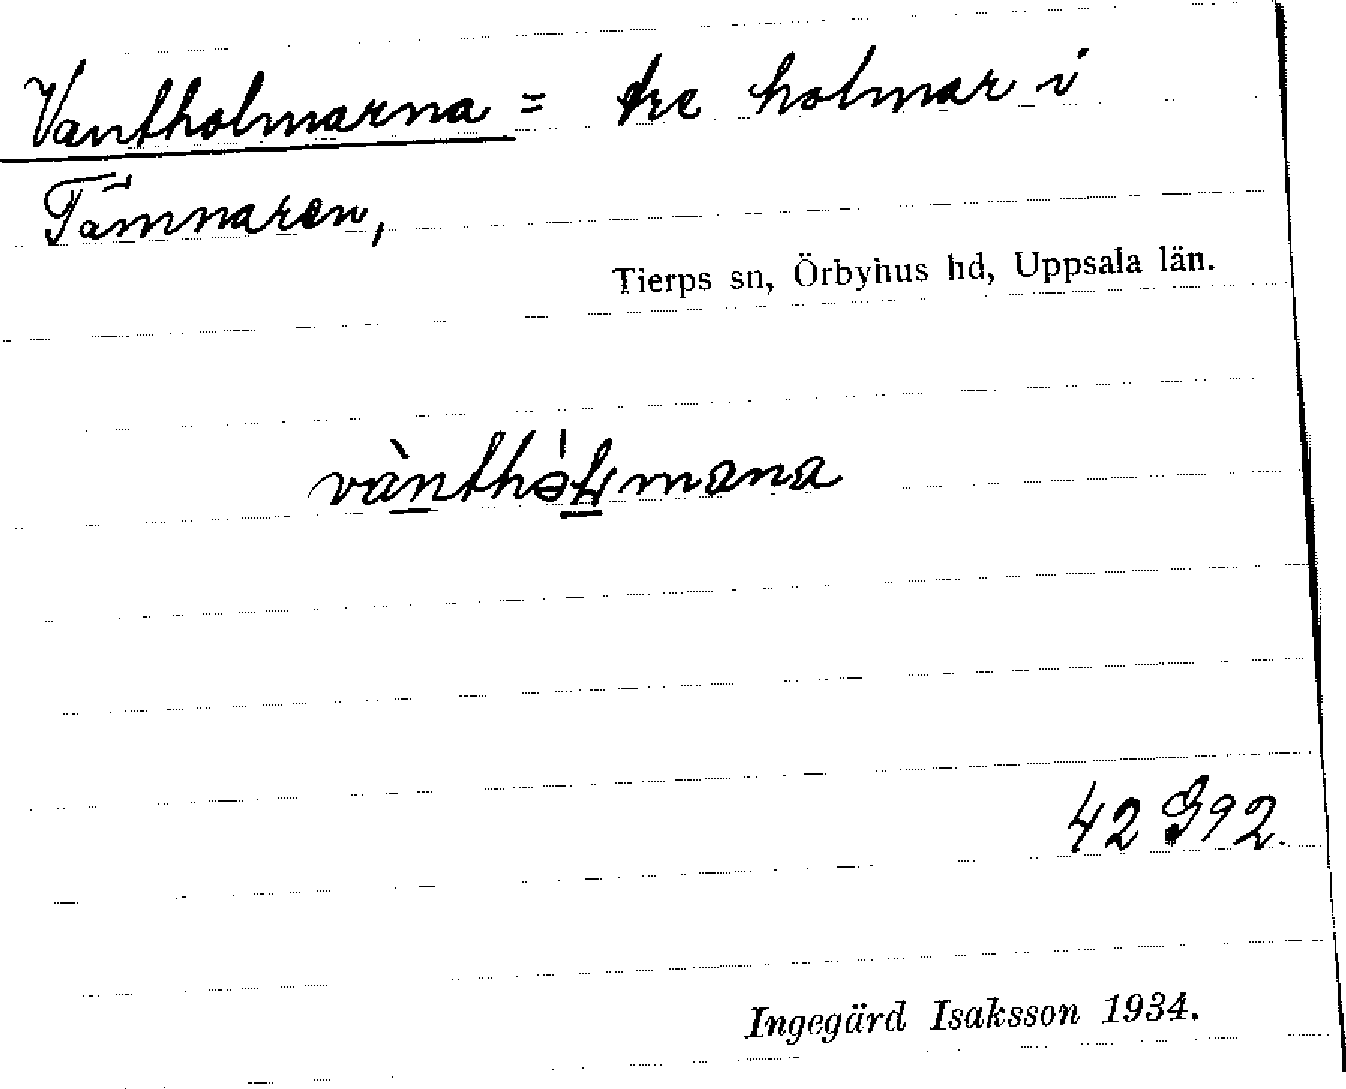 Vantholmarna = tre holmar i
Tämnaren,
Tierps sn, Örbyhus hd, Uppsala län.
42 G92.
Ingegärd Isaksson 1934.